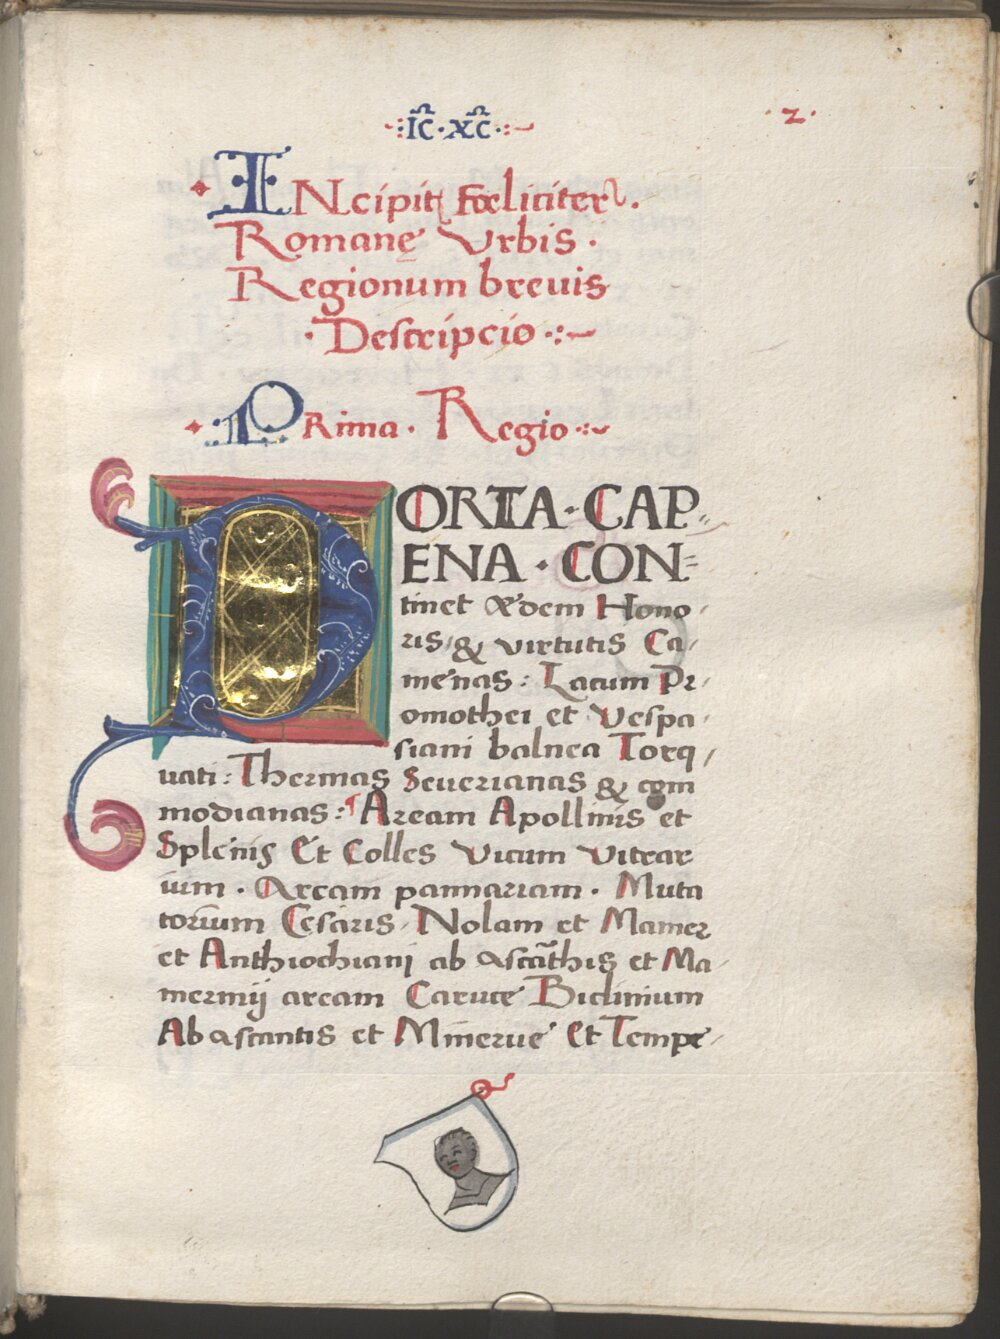 ·:IC̄·XC̄·:
2·
INcipit fœliciter.
Romanę Vrbis·
Regionum breuis
·Descripcio·:
PRima·Regio·:
PORTA·CAP
ENA·CON
tinet ædem Hono
ris, & virtutis Ca
menas: Lacum Pr
omothei et Vespa
siani balnea Torq
uati: Thermas Seuerianas & com
modianas: Aream Apollinis et
Splenis Et Colles Vicum Vitrar
ium· Arcam pannariam· Muta
torium Cesaris, Nolam et Mamer
et Anthiochiani ab ascāthis et Ma
mermij aream Caruce Biclinium
Ab ascantis et Minerue Et Tempe